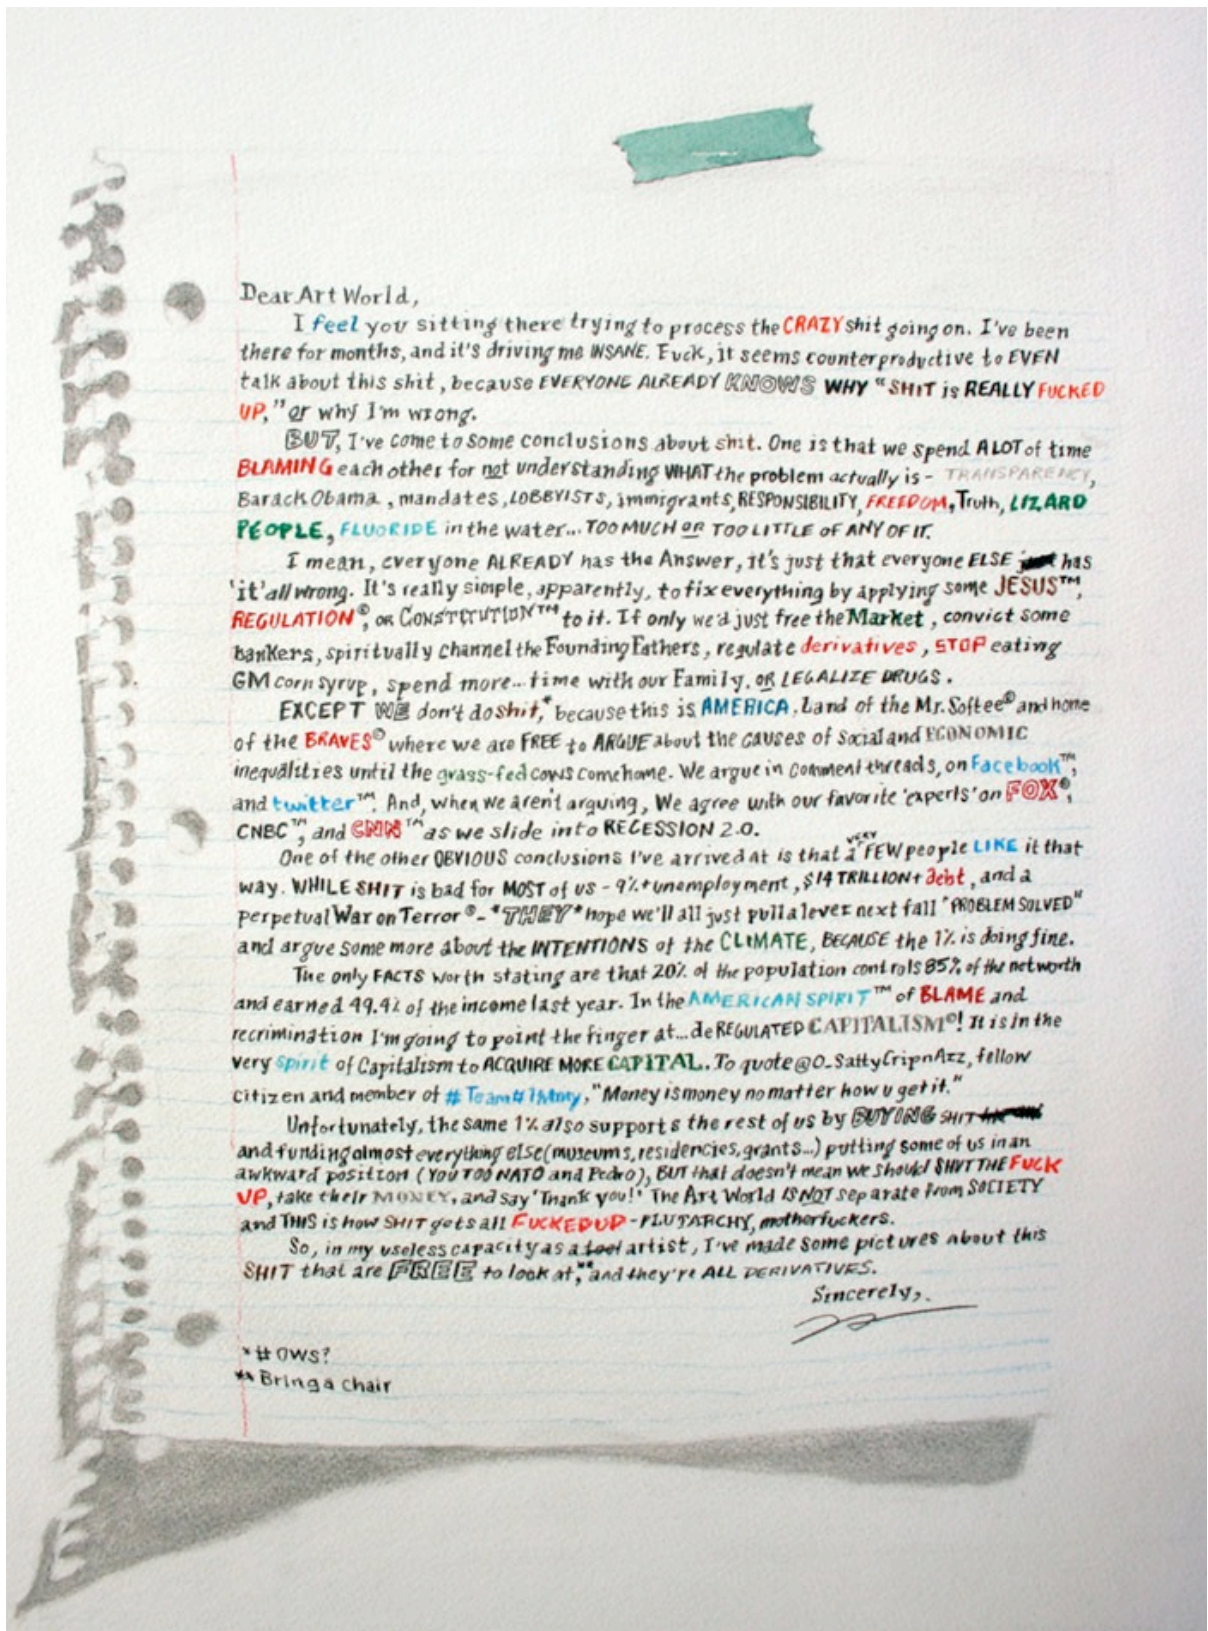 Dear Art World,
I feel you sitting there trying to process the CRAZY shit going on. I've been
there for months, and it's driving me INSANE. Fuck, it seems counterproductive to EVEN
talk about this shit, because EVERYONE ALREADY KNOWS WHY "SHIT is REALLY FUCKED
UP," or why I'm wrong.
BUT, I've come to some conclusions about shit. One is that we spend A LOT of time
BLAMING each other for not understanding WHAT the problem actually is - TRANSPARENCY,
Barack Obama, mandates, LOBBYISTS, immigrants, RESPONSIBILITY, FREEDOM, Truth, LIZARD
PEOPLE, FLUORIDE in the water... TOO MUCH OR TOO LITTLE OF ANY OF IT.
I mean, everyone ALREADY has the Answer, it's just that everyone ELSE just has
'it' all wrong. It's really simple, apparently, to fix everything by applying some JESUS™,
REGULATION®, OR CONSTITUTION™ to it. If only we'd just free the Market, convict some
bankers, spiritually channel the Founding Fathers, regulate derivatives, STOP eating
GM corn syrup, spend more... time with our Family, OR LEGALIZE DRUGS.
EXCEPT WE don't do shit,* because this is AMERICA, Land of the Mr. Softee® and home
of the BRAVES® where we are FREE to ARGUE about the causes of Social and ECONOMIC
inequalities until the grass-fed cows come home. We argue in comment threads, on Facebook™,
and twitter™. And, when we aren't arguing, We agree with our favorite 'experts' on FOX®,
CNBC™, and CNN™ as we slide into RECESSION 2.0.
One of the other OBVIOUS conclusions I've arrived at is that a VERY FEW people LIKE it that
way. WHILE SHIT is bad for MOST of us - 9%+ unemployment, $14 TRILLION+ debt, and a
perpetual War on Terror® - *THEY* hope we'll all just pull a lever next fall "PROBLEM SOLVED"
and argue some more about the INTENTIONS of the CLIMATE, BECAUSE the 1% is doing fine.
The only FACTS worth stating are that 20% of the population controls 85% of the net worth
and earned 49.4% of the income last year. In the AMERICAN SPIRIT™ of BLAME and
recrimination I'm going to point the finger at... deREGULATED CAPITALISM©! It is in the
very spirit of Capitalism to ACQUIRE MORE CAPITAL. To quote @O_SattyCripnAzz, fellow
citizen and member of #Team#1Mmy, "Money is money no matter how u get it."
Unfortunately, the same 1% also supports the rest of us by BUYING SHIT
and funding almost everything else (museums, residencies, grants...) putting some of us in an
awkward position (YOU TOO NATO and Pedro), BUT that doesn't mean we should SHUT THE FUCK
UP, take their MONEY, and say 'Thank you!' The Art World IS NOT separate from SOCIETY
and THIS is how SHIT gets all FUCKED UP - PLUTARCHY, motherfuckers.
So, in my useless capacity as a tool artist, I've made some pictures about this
SHIT that are FREE to look at,** and they're ALL DERIVATIVES.
Sincerely,
*#OWS?
**Bring a chair